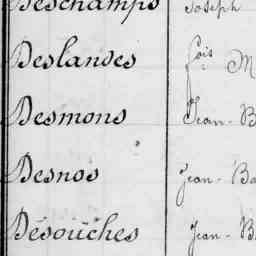 Deschamps Joseph
Deslandes fois M
Desmons Jean - B
Desnos Jean - Ba
Désouches Jean - B